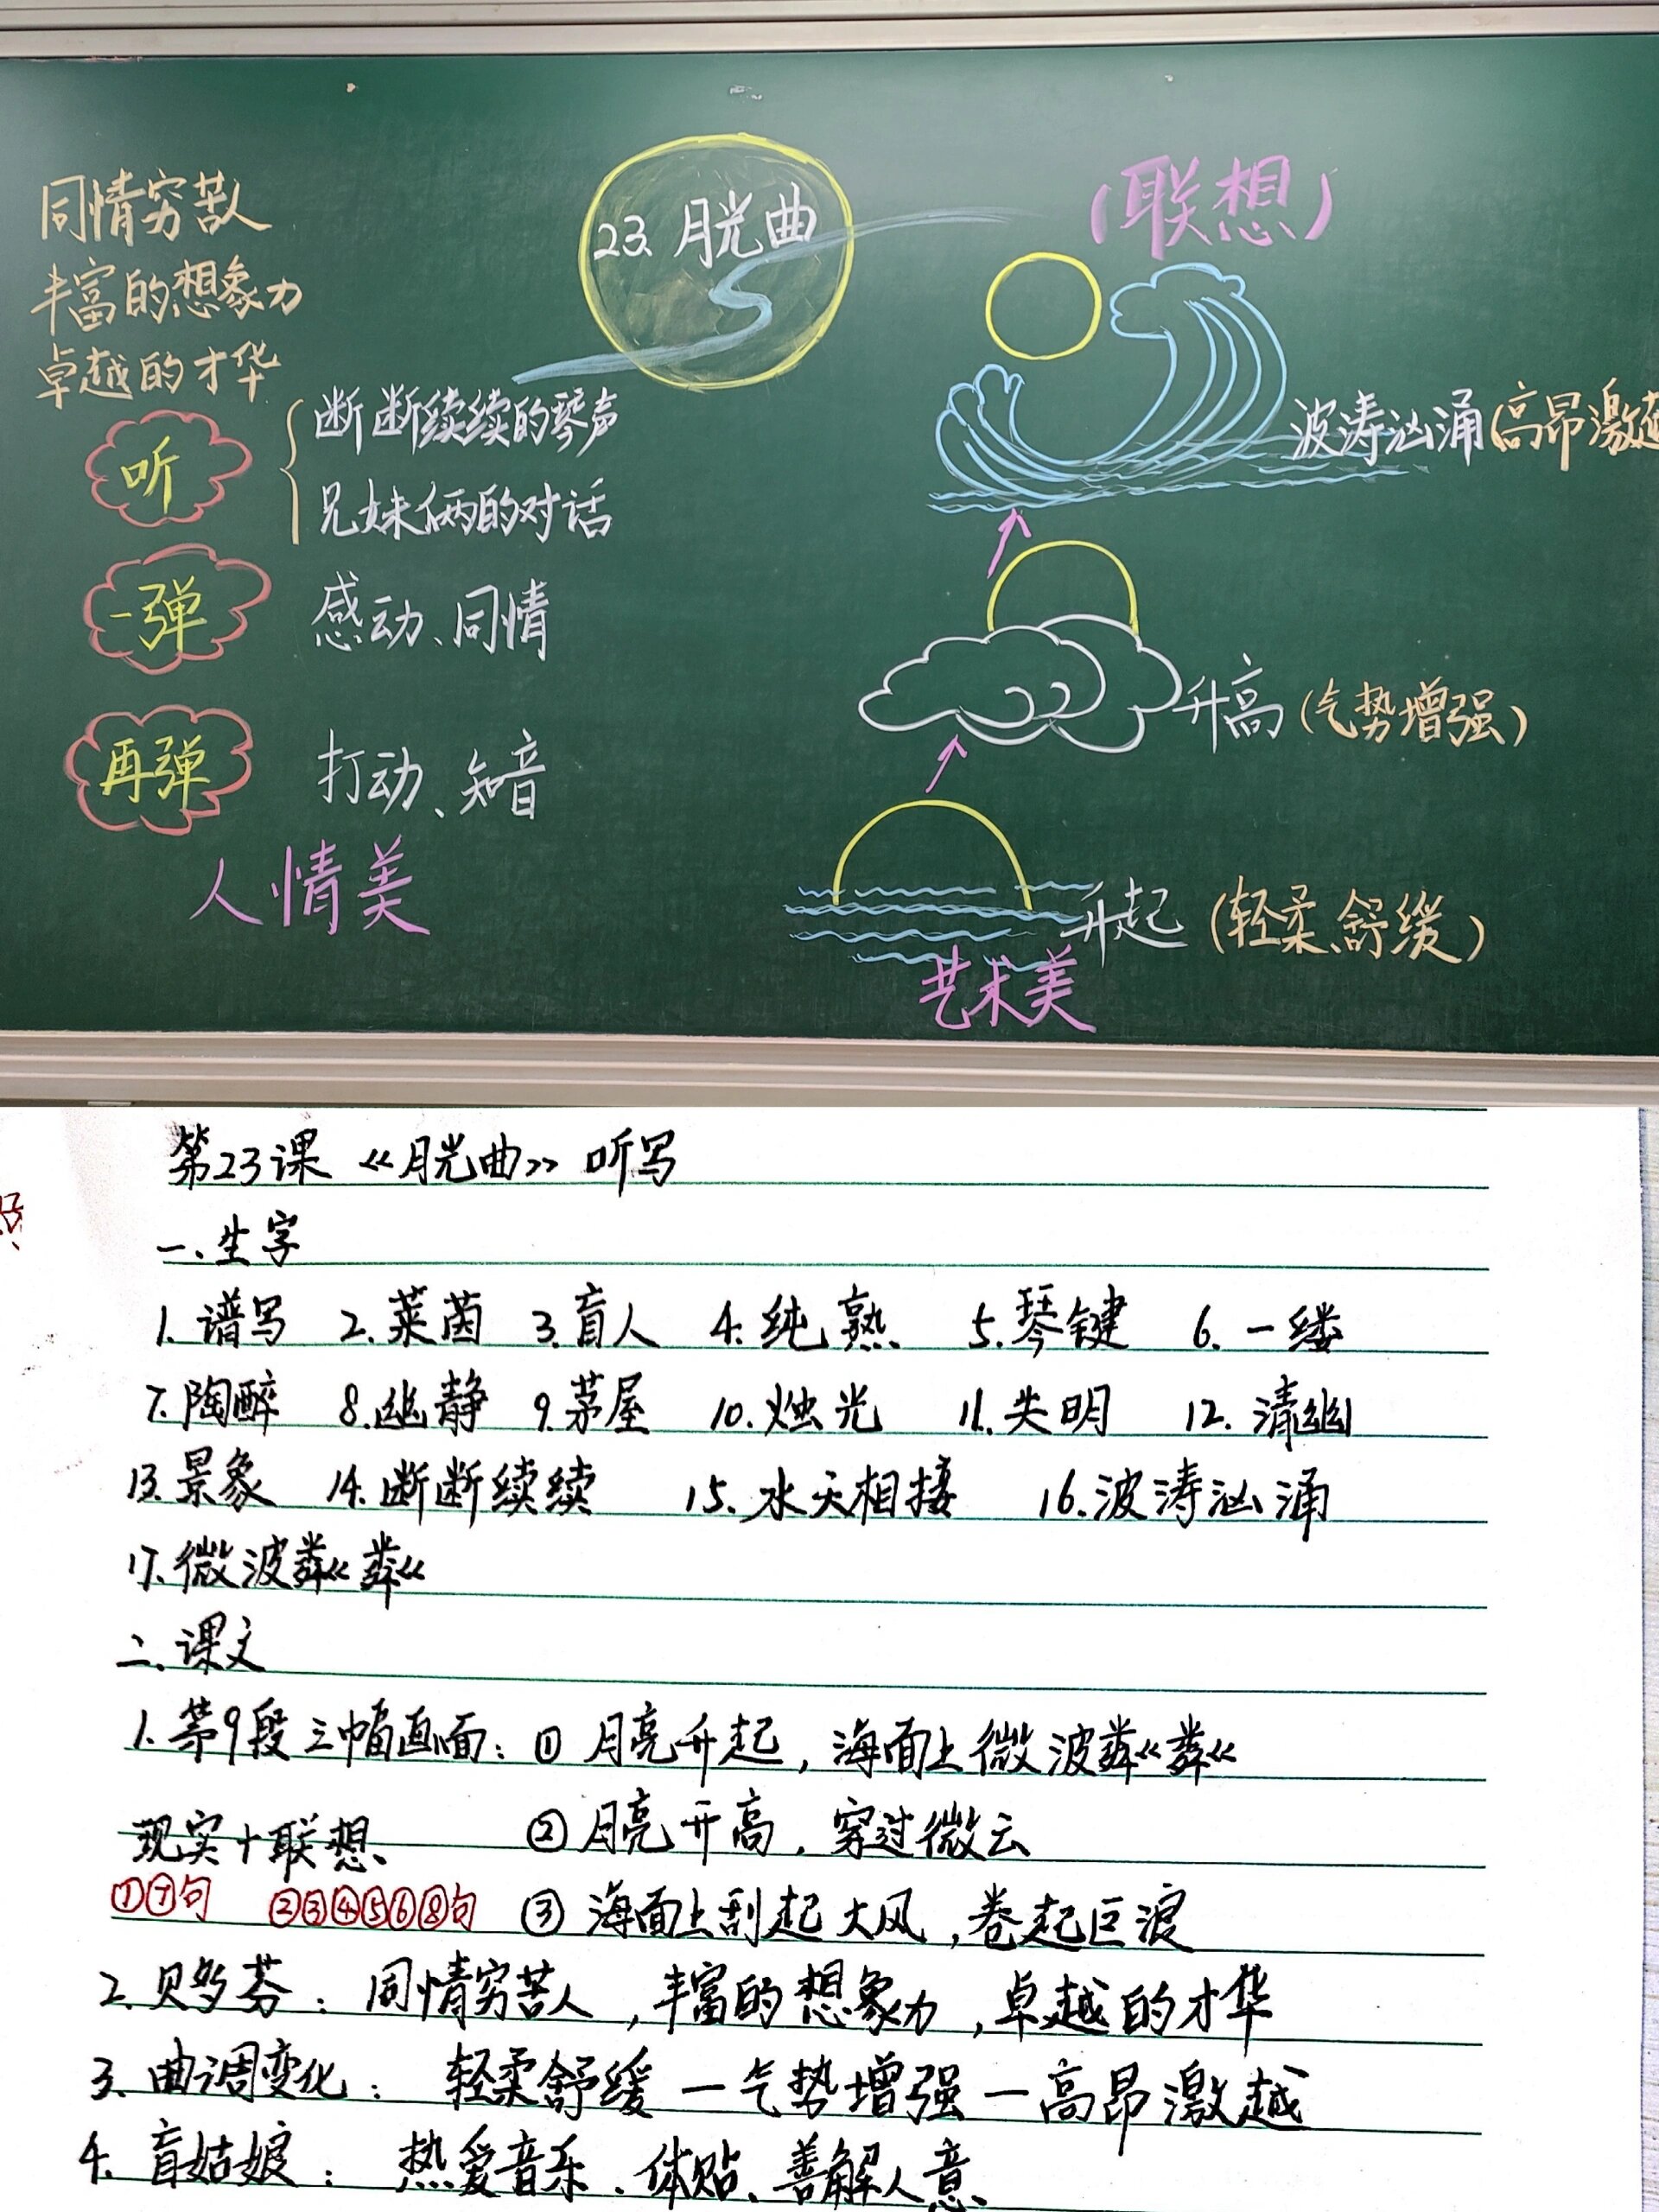 23.月光曲
同情穷苦人
丰富的想象力
卓越的才华
听
断断续续的琴声
兄妹俩的对话
一弹
感动、同情
再弹
打动、知音
人情美
(联想)
波涛汹涌(高昂激越
升高(气势增强)
升起(轻柔、舒缓)
艺术美
第23课《月光曲》听写
一、生字
1.谱写 2.莱茵 3.盲人 4.纯熟 5.琴键 6.一缕
7.陶醉 8.幽静 9.茅屋 10.烛光 11.失明 12.清幽
13.景象 14.断断续续 15.水天相接 16.波涛汹涌
17.微波粼粼
二、课文
1.第9段三幅画面:①月亮升起,海面上微波粼粼
现实+联想 ②月亮升高,穿过微云
①⑦句 ②③④⑤⑥⑧句 ③海面上刮起大风,卷起巨浪
2.贝多芬:同情穷苦人,丰富的想象力,卓越的才华
3.曲调变化:轻柔舒缓—气势增强—高昂激越
4.盲姑娘:热爱音乐、体贴、善解人意